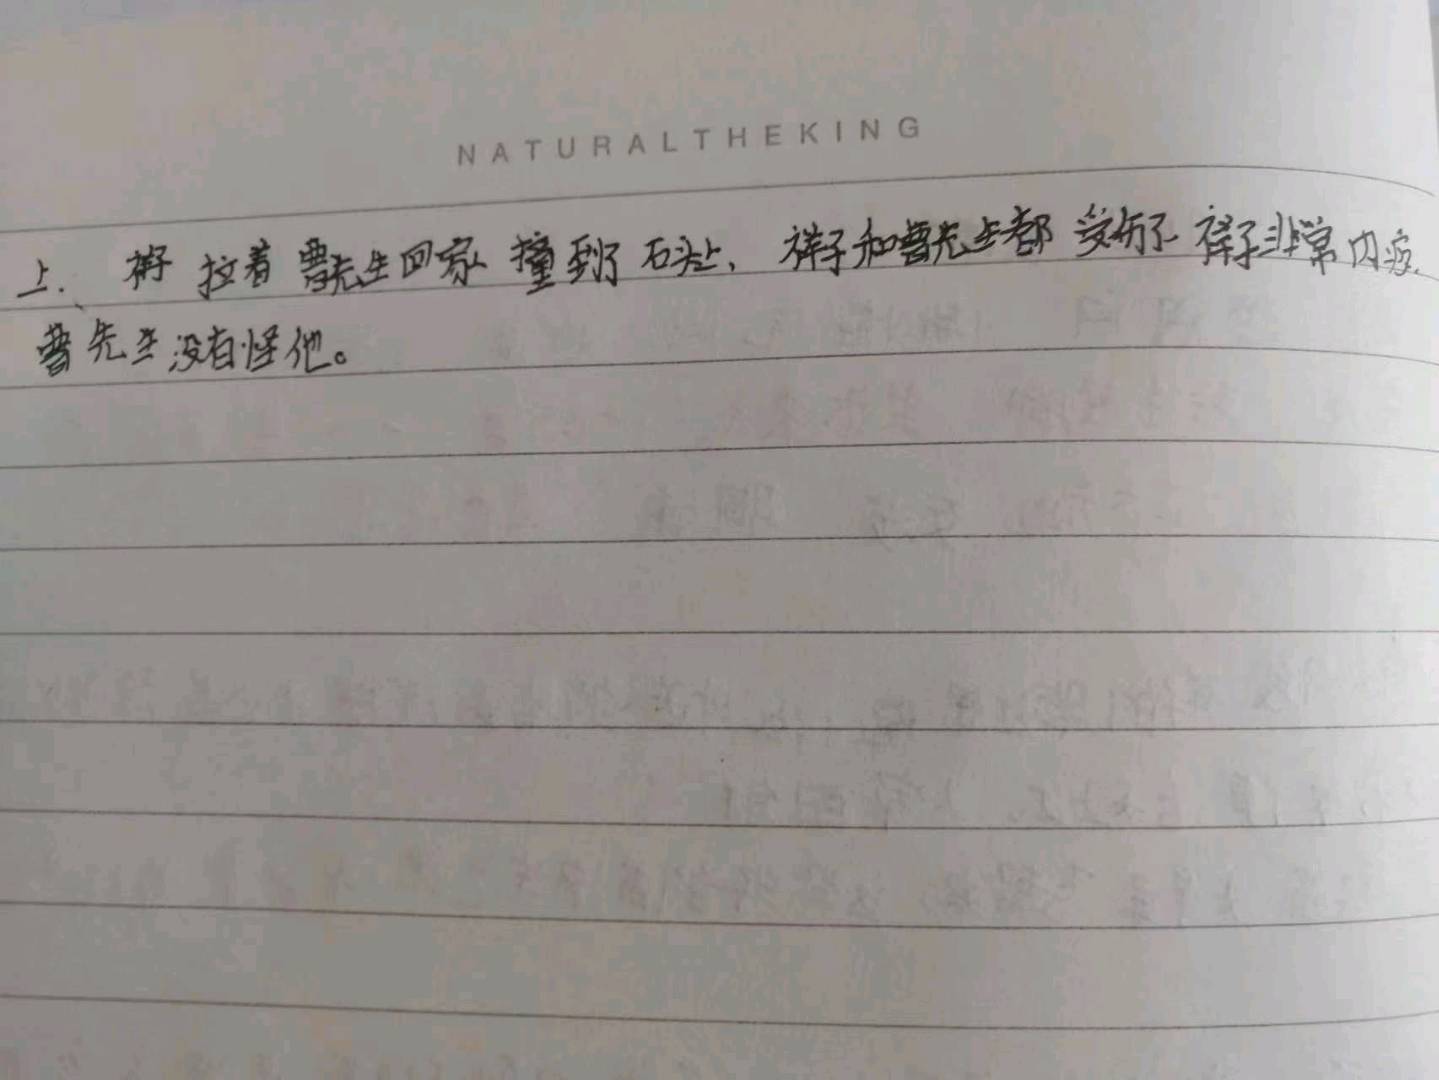 NATURALTHEKING
上. 祥子拉着曹先生回家撞到了石头上、祥子和曹先生都受伤了 祥子非常内疚.
曹先生没有怪他。